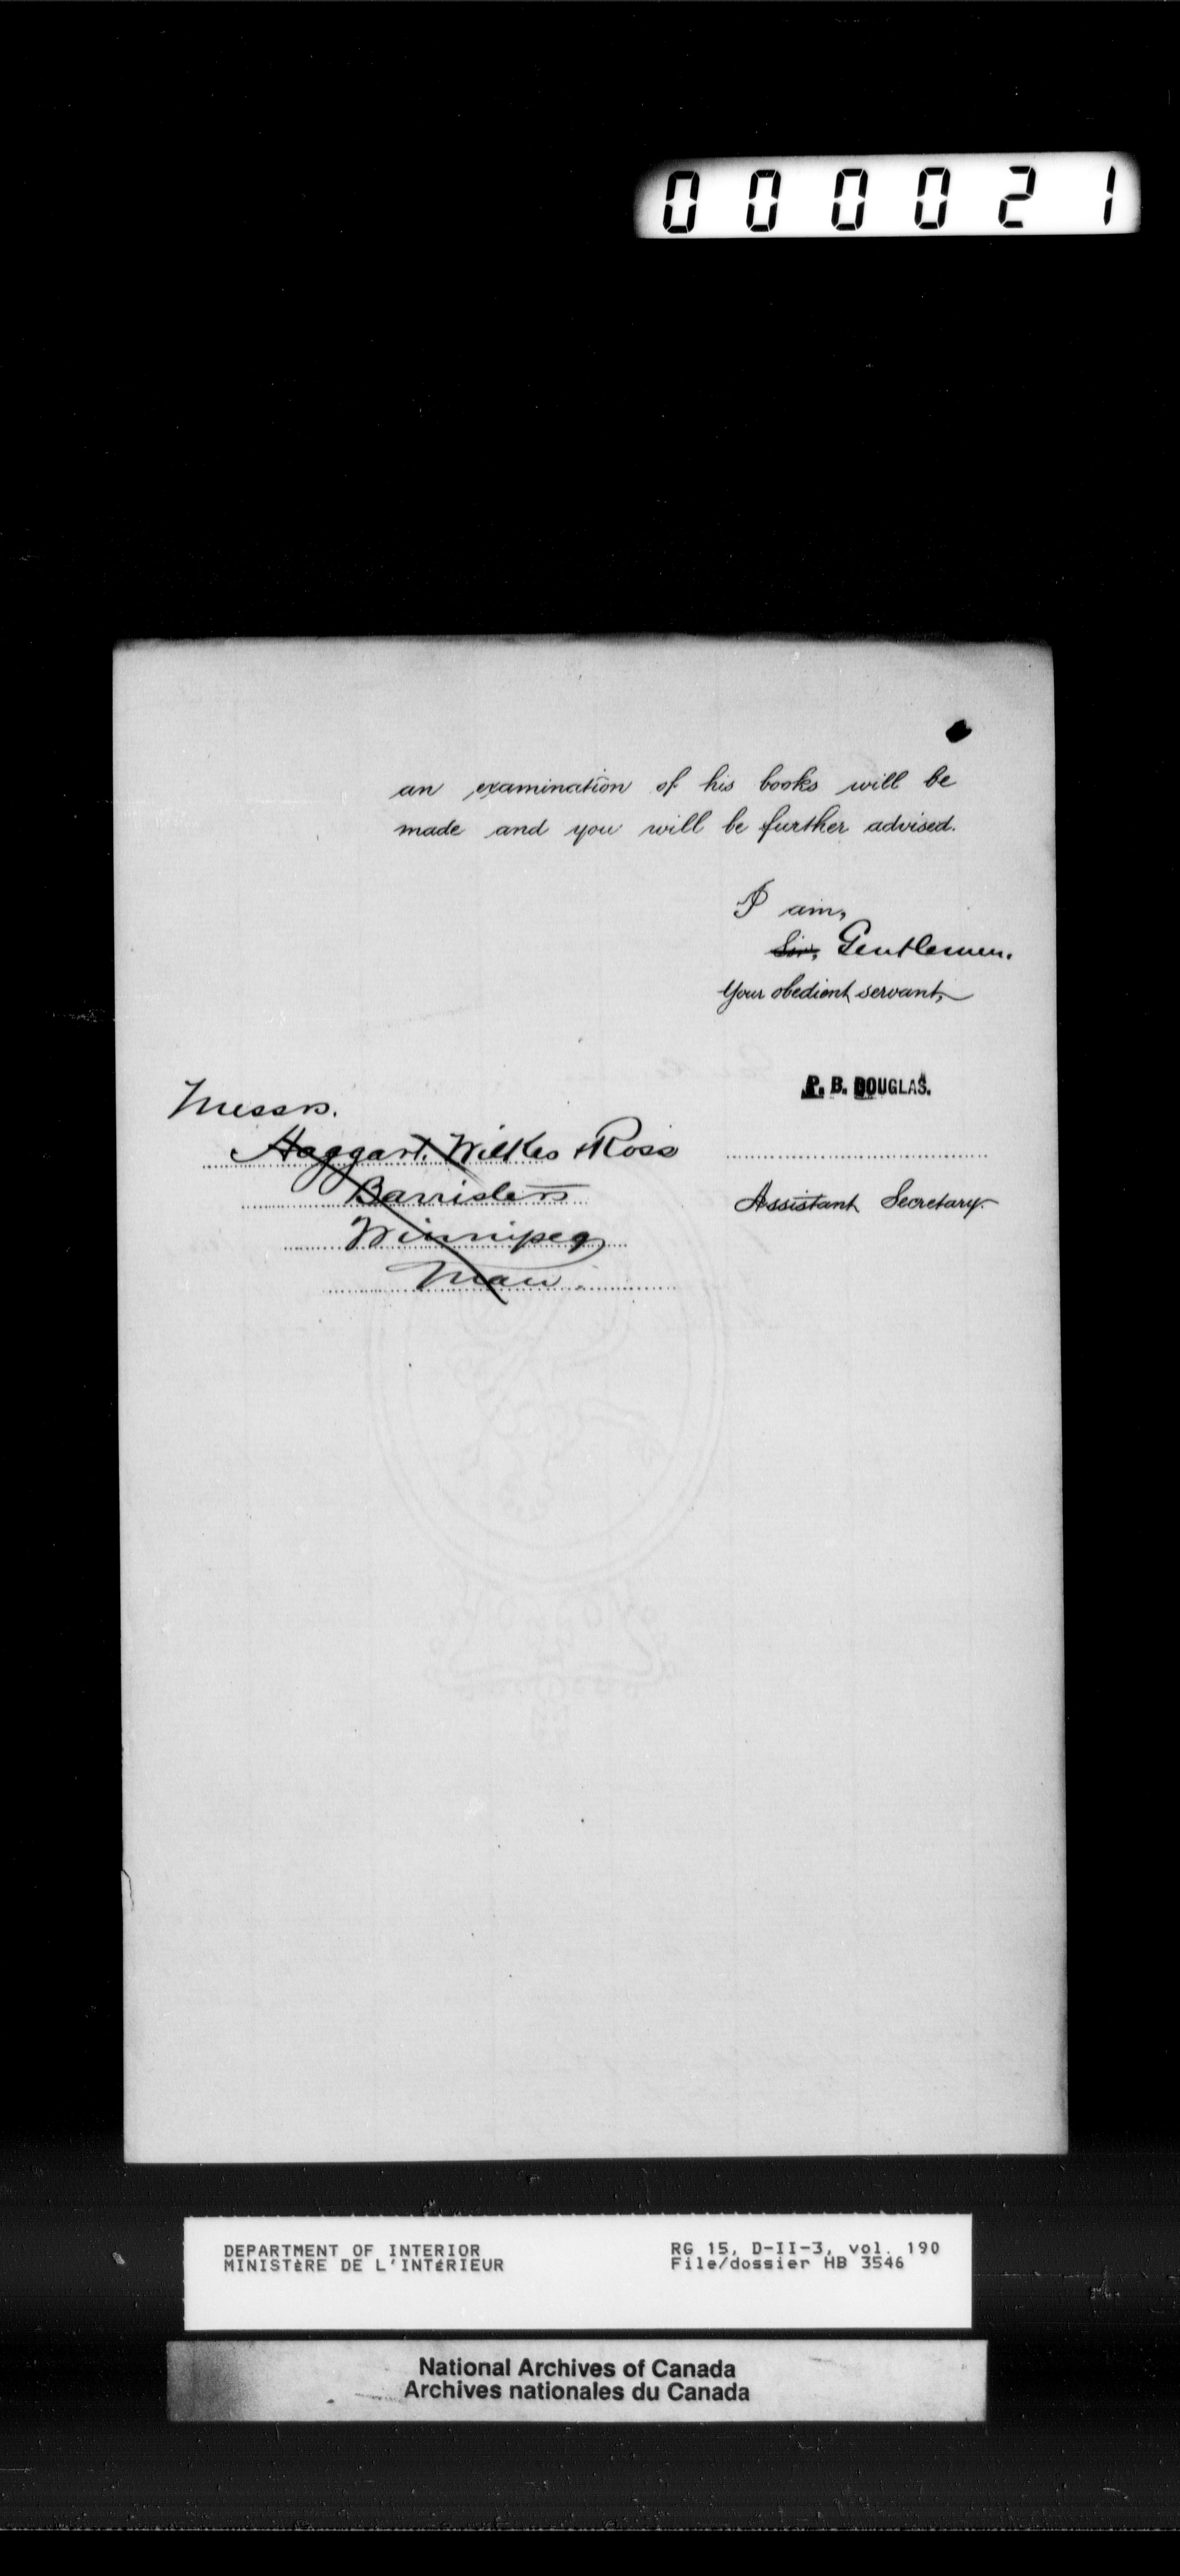 000021
an examination of his books will be
made and you will be further advised.
I am,
Sir, Gentlemen.
Your obedient servant,
P. B. DOUGLAS.
Messrs.
Haggart, Wilkes & Ross
Barristers
Winnipeg
Man.
Assistant Secretary.
DEPARTMENT OF INTERIOR
MINISTÈRE DE L'INTÉRIEUR
RG 15, D-II-3, vol. 190
File/dossier HB 3546
National Archives of Canada
Archives nationales du Canada